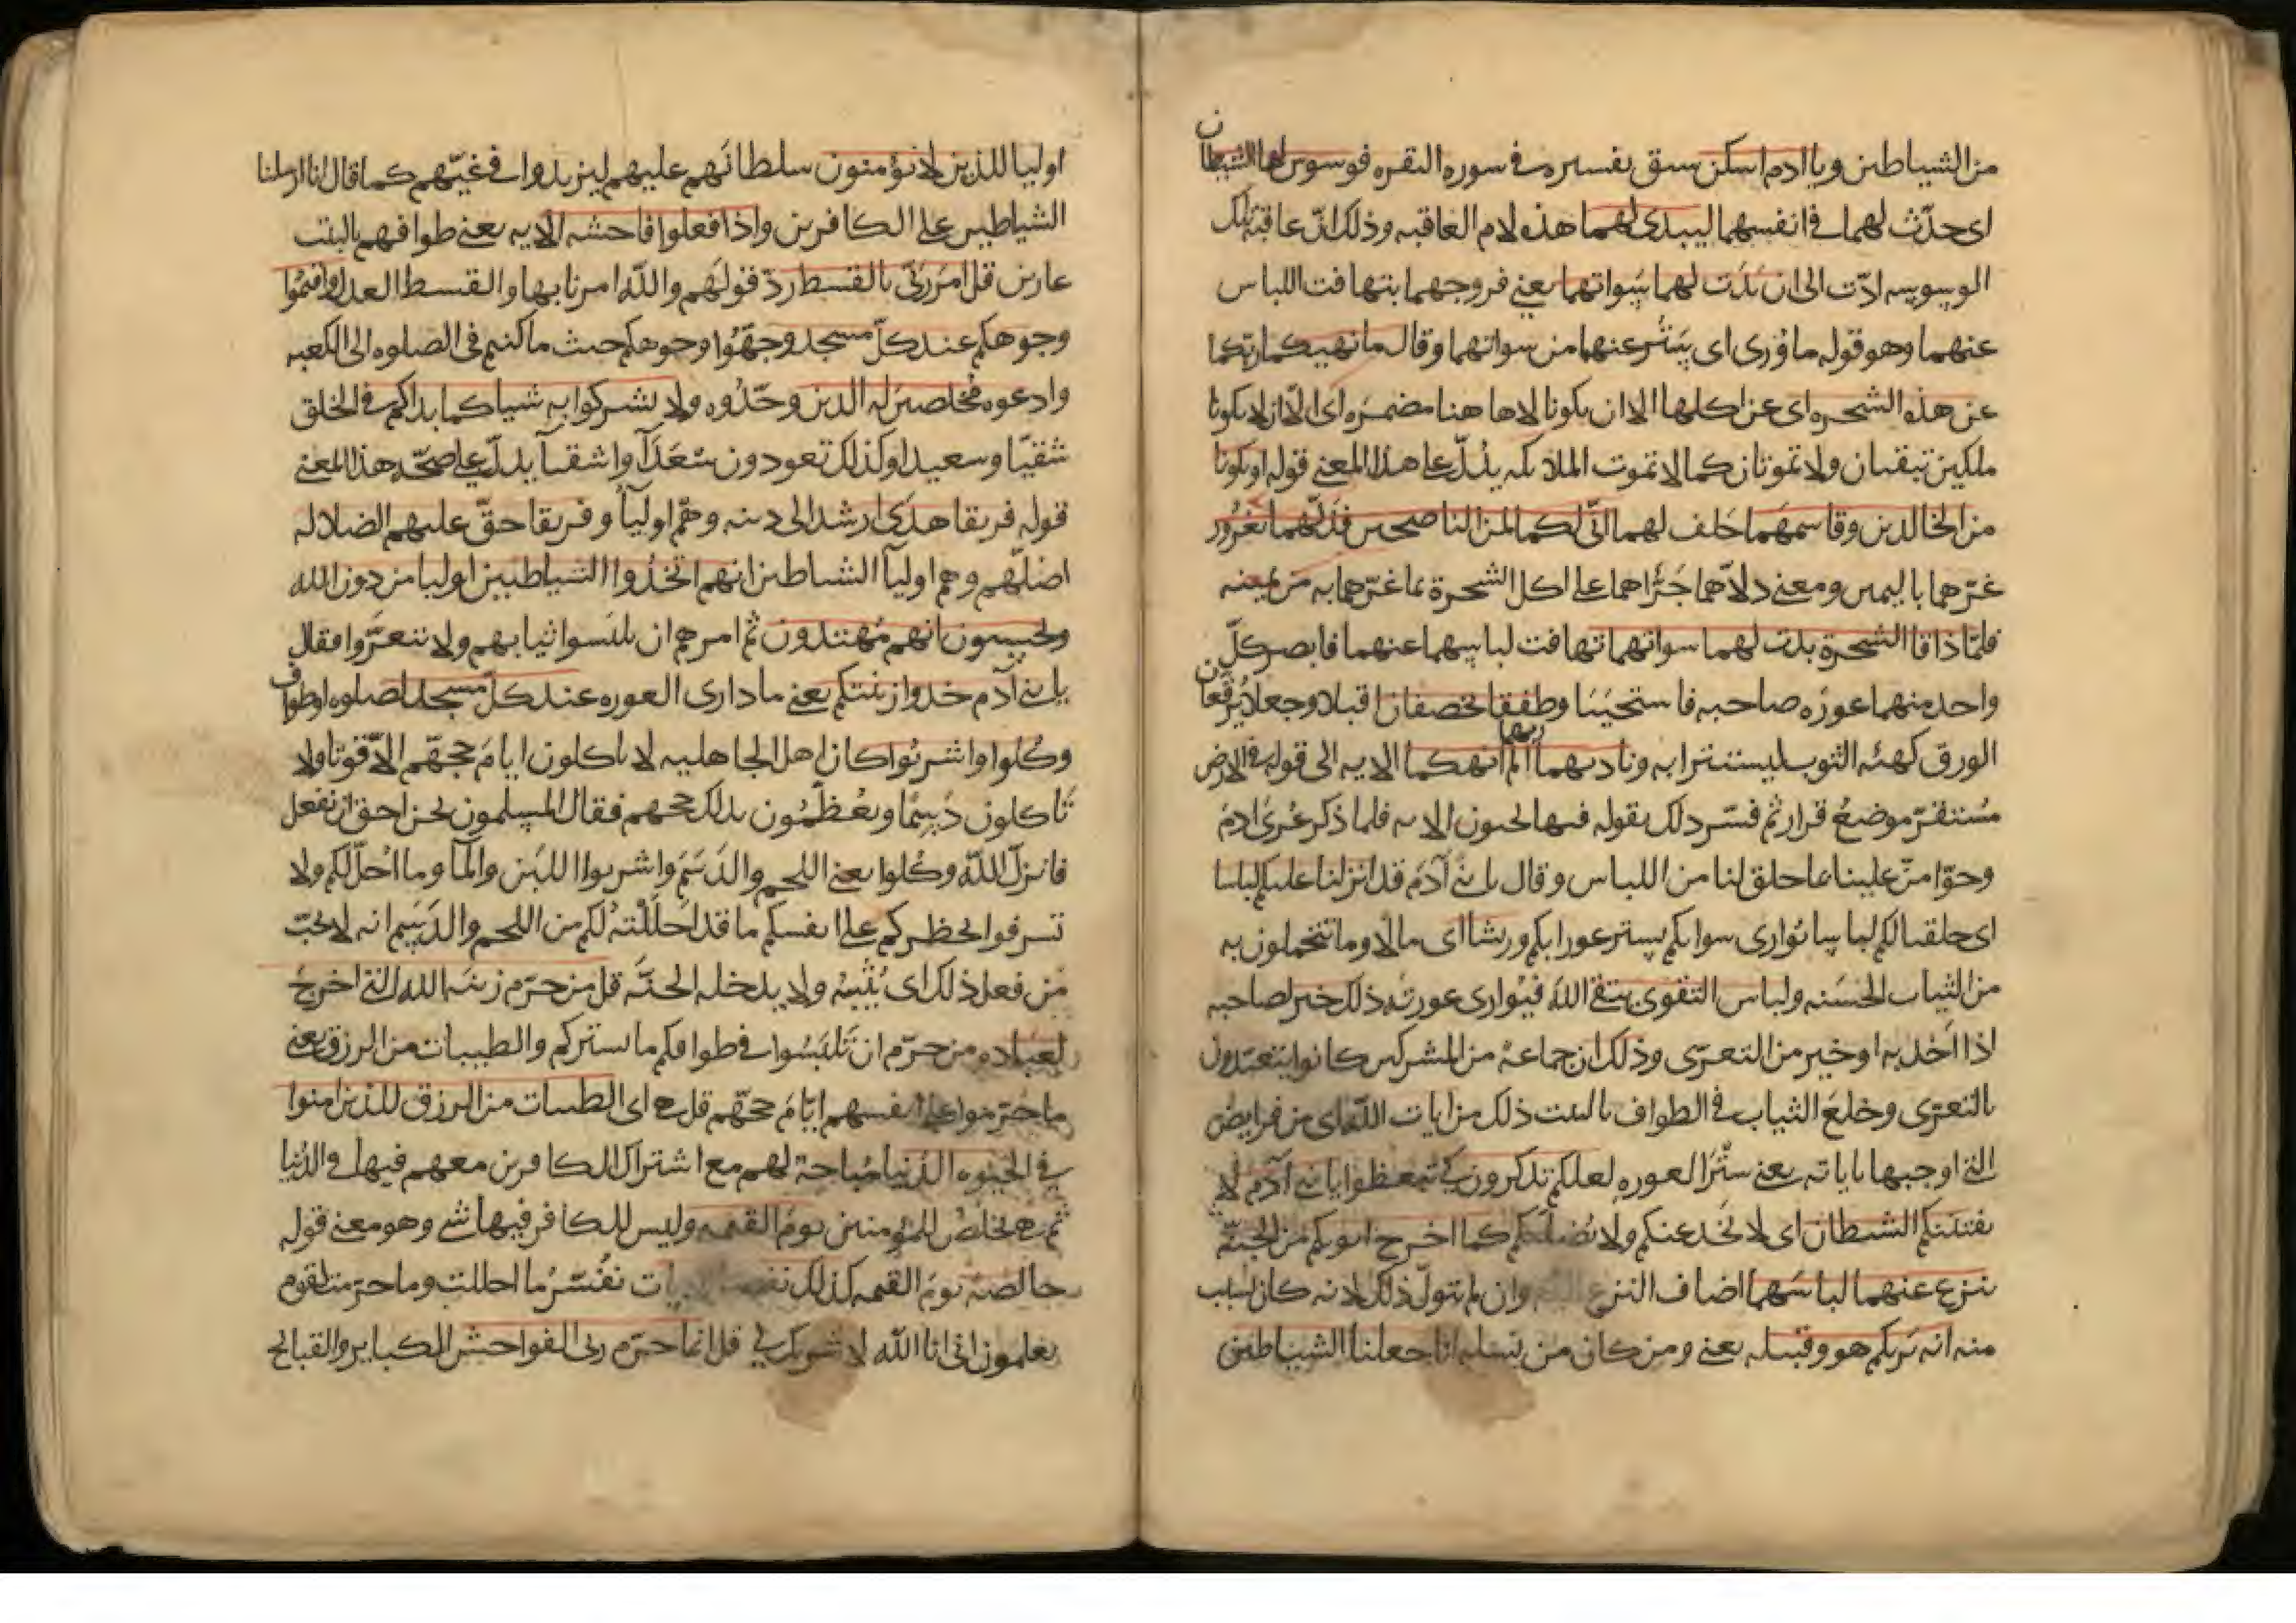 من الشياطين ويا ادم اسكن سبق تفسيره في سوره البقره فوسوس لهما الشيطان
اى حدّث لهما في انفسهما ليبدى لهما هذه لام العاقبه وذلك انّ عاقبة تلك
الوسوسه ادّت الى ان بَدَت لهما سَواتهما يعني فروجهما بتهافت اللباس
عنهما وهو قوله ما وُرى اى يَنتُر عنهما من سواتهما وقال ما نهيكما ربّكما
عن هذه الشجره اى عن اكلها الا ان يكونا لا هاهنا مضمره اى الّا ان لا يكونا
ملكين تبقيان ولا تموتان كما لا تموت الملائكه يدُلّ على هذا المعني قوله او يكونا
من الخالدين وقاسمهما حَلف لهما انّى لكما لمن الناصحين فدَلّهما بغُرُور
غرّهما باليمين ومعنى دلّاهما جَرّأهما على اكل الشجرة بما غرّهما به من يمينه
فلمّا ذاقا الشجرة بدت لهما سواتهما تهافت لباسهما عنهما فابصر كلّ
واحد منهما عورَه صاحبه فاستحيَيَا وطفقا يخصفان اقبلا وجعلا يُرقّعان
الورق كهئه الثوب ليستترا به وناديهما ربهما الم انهكما الايه الى قوله في الارض
مُستقرّ موضعُ قرار ثم فسّر ذلك بقوله فيها تحيون الايه فلما ذكر عُرىَ ادمَ
وحوّا منّ علينا بما خلق لنا من اللباس وقال يا بني آدَم قد انزلنا عليكم لباسا
اى خلقنا لكم لباسا يُوارى سواتكم يستر عوراتكم وريشا اى مالا وما تتجملون به
من الثياب الحَسَنه ولباس التقوى يتقي اللّه فيُوارى عورته ذلك خير لصاحبه
اذا اَخذ به او خير من التعرّى وذلك ان جماعةً من المشركين كانوا يتعبّدون
بالتعرّى وخلعِ الثياب في الطواف بالبيت ذلك من ايات اللّه اى من فرايض
التي اوجبها باياته يعني ستْرَ العوره لعلكم تذكرون كى تتعظوا يا بني آدم لا
يفتننكم الشيطان اى لا يَخدعنكم ولا يُضلّنكم كما اخرج ابويكم من الجنّه
ينزع عنهما لباسَهما اضاف النزع وان لم يتولّ ذلك لانه كان بسبب
منه انه يَريكم هو وقبيله يعني ومن كان من نسله انا جعلنا الشياطين
اوليا للذين لا يؤمنون سلطانَهم عليهم ليزيدوا في غيّهم كما قال انا ارسلنا
الشياطين على الكافرين واذا فعلوا فاحشه الايه يعني طوافهم بالبيت
عارين قل امرَ ربّى بالقسط ردّ قولهم واللّه امرنا بها والقسط العدل واقيمُوا
وجوهكم عند كلّ مسجد وجهّوا وجوهكم حيث ما كنتم في الصلوه الى الكعبه
وادعوه مُخلصين له الدين وحّدُوه ولا تشركوا به شيا كما بداكم في الخلق
شقيّا وسعيدا وكذلك تعودون سُعَدَآ واشقيآ يدلّ على صحّه هذا المعنى
قوله فريقا هدَى ارشد الى دينه وهم اوليآؤ وفريقا حقّ عليهم الضلاله
اضلّهم وهم اوليآ الشياطين انهم اتخذُوا الشياطين اوليا من دون الله
ويحسبون انهم مُهتدون ثم امرهم ان يلبَسوا ثيابهم ولا يتعرَّوا فقال
يا بني آدم خذوا زينتكم يعني ما وارى العوره عند كلّ مسجد لصلوه او طواف
وكُلوا واشربُوا كان اهل الجاهليه لا ياكلون ايامَ حجهّم الّا قوتا ولا
يَاكلون دَسِمًا ويُعظّمُون بذلك حجهم فقال المسلمون نحن احق ان نفعل
فانزل اللّه وكُلوا يعني اللحم والدَسَمَ واشربوا اللبن والمآ وما اُحلّ لكم ولا
تسرفوا بحظركم على انفسكم ما قد اَحلَلْتُه لكم من اللحم والدَسَم انه لا يحبّ
مَن فعل ذلك اى يُثيبُه ولا يدخله الجنّه قل من حرّم زينَه الله التي اخرجَ
لعباده من حرّم ان تَلبَسُوا في طوافكم ما يستركم والطيبات من الرزق يعني
ما حَرّموا على انفسهم ايّامَ حجّهم قل هى اى الطيبات من الرزق للذين امنوا
في الحيوه الدُنيا مُباحة لهم مع اشتراك الكافرين معهم فيها في الدُنيا
ثم هى تخلُصُ للمؤمنين يومَ القيمه وليس للكافر فيها شي وهو معنى قوله
خالصةً يومَ القيمه كذلك نفصل الايات نُفسّرُ ما احللت وما حرّمت لقوم
يعلمون انى انا اللّه لا شريكَ لي قل انما حرّم ربى الفواحش الكباير والقبائح